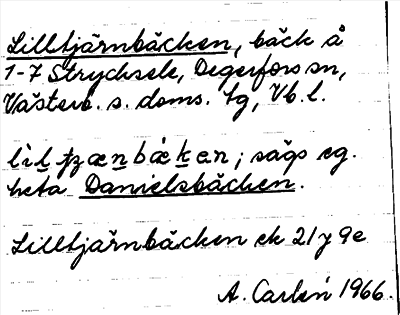 Lilltjärnbäcken, bäck å
1-7 Strycksele, Degerfors sn,
Västerb. s. doms. tg, Vb. l.
heta Danielsbäcken.
Lilltjärnbäcken ek 21 y 9e
A. Carlén 1966.